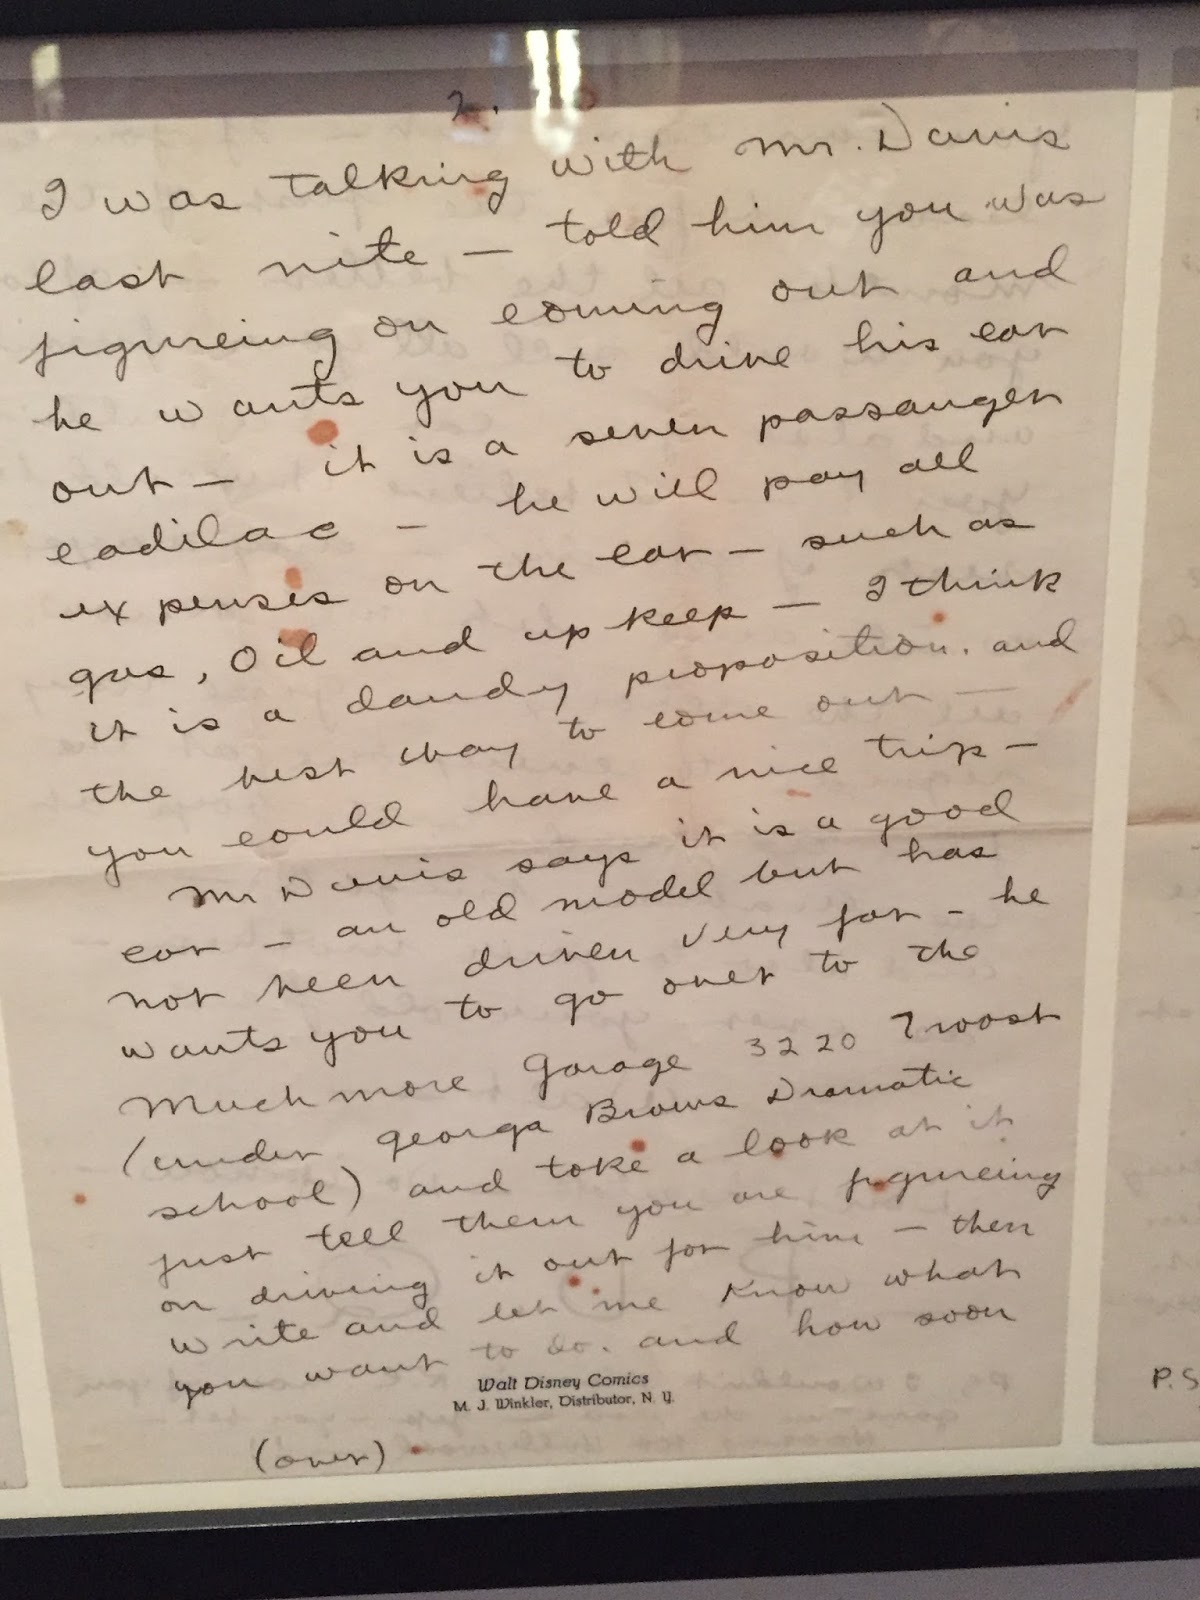 2.
I was talking with Mr. Davis
last nite — told him you was
figureing on coming out and
he wants you to drive his car
out — it is a seven passanger
cadilac — he will pay all
expenses on the car — such as
gas, Oil and up keep — I think
it is a dandy proposition. and
the best way to come out —
you could have a nice trip —
Mr Davis says it is a good
car — an old model but has
not been driven very far — he
wants you to go over to the
Muchmore Garage 3220 Troost
(under Georga Browns Dramatic
school) and take a look at it
just tell them you are figureing
on driving it out for him — then
write and let me know what
you want to do. and how soon
Walt Disney Comics
M. J. Winkler, Distributor, N. Y.
(over)
P.S